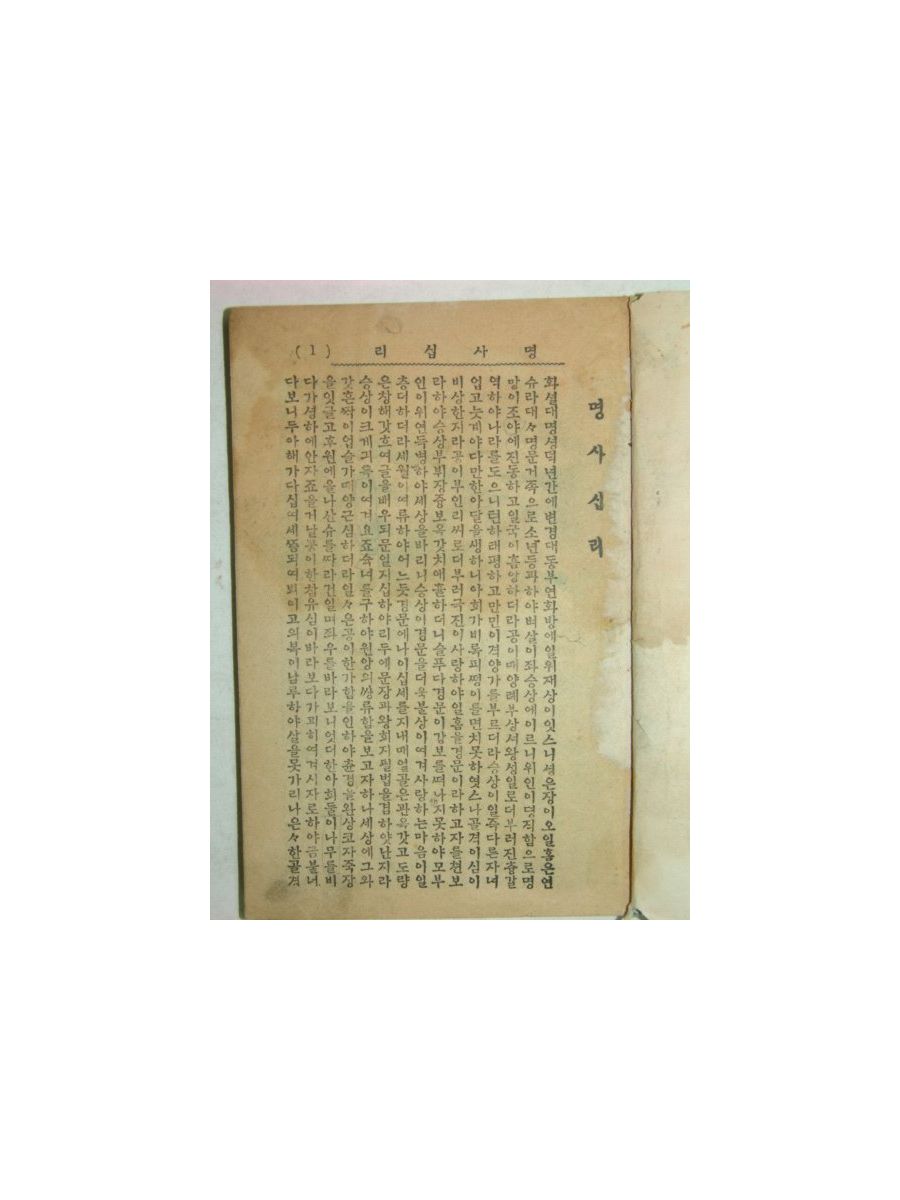 명사십리 (1)
명사십리
화셜대명셩덕년간에변경대동부연화방에일위재상이잇스니셩은장이오일홈은연
슈라대々명문거죡으로소년등과하야벼살이좌승상에이르니위인이졍직함으로명
망이조야에진동하고일국이흠앙하더라공이매양례부상셔왕셩일로더부러진츙갈
역하야나라를도으니텬하태평하고만민이격양가를부르더라승상이일즉다른자녀
업고늣게야다만한아달을생하니아희가비록피평이를면치못하엿스나골격이심이
비상한지라공이부인리씨로더부러극진이사랑하야일홈을경문이라하고자를쳔보
라하야승상부뷔장즁보옥갓치애휼하더니슬푸다경문이강보를떠나지못하야모부
인이위연득병하야세상을바리니승상이경문을더욱불상이여겨사랑하는마음이일
층더하더라세월이여류하야어느듯경문에나이십세를지내매얼골은관옥갓고도량
은창해갓흐여글을배우되문일지십하야리두에문장과왕희지필법을겸하얏난지라
승상이크게긔특이여겨요죠슉녀를구하야원앙의쌍류함을보고자하나세상에그와
갓흔짝이업슬가매양근심하더라일々은공이한가함을인하야츈경을완상코자죽장
을잇글고후원에올나산슈를따라건일며좌우를바라보니엇더한아희둘이나무를비
다가셩하에안자죠을거날공이한참유심이바라보다가괴히여겨시자로하야금불너
다보니두아해가다십여세쯤되여뵈이고의복이남루하야살을못가리나은々한골격